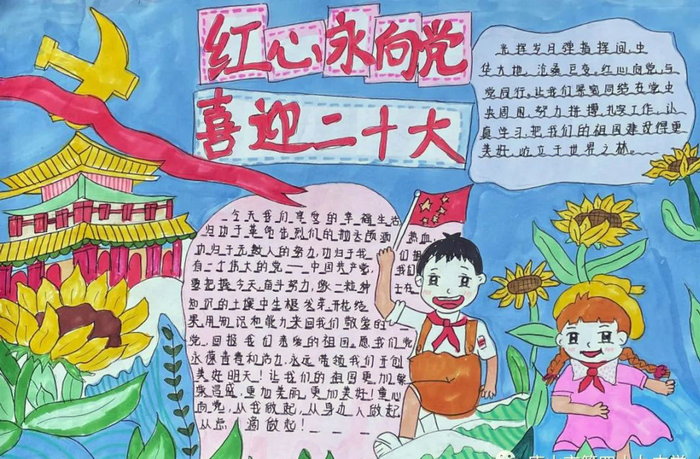 红心永向党
喜迎二十大
光辉岁月弹指挥间,中
华大地,沧桑巨变。红心向党,与
党同行。让我们紧密团结在党中
央周围,努力拼搏,扎实工作,认
真学习,把我们的祖国建设得更
美好,屹立于世界之林。
今天我们享受的幸福生活
归功于革命先烈们的抛头颅洒热血
功归于无数人的努力,功归于我们
有一个伟大的党——中国共产党,我们
要把握今天,自于努力,像一粒种
知识的土壤中生根发芽,开花结
果,用知识和能力来回我们敬爱的
党,回报我们亲爱的祖国。愿我们党
永葆青春和活力,永远带领我们开创
美好明天!让我们的祖国更加繁
荣昌盛,更加美丽,更加美好!童心
向党,从我做起,从身边人做起
从点滴做起!